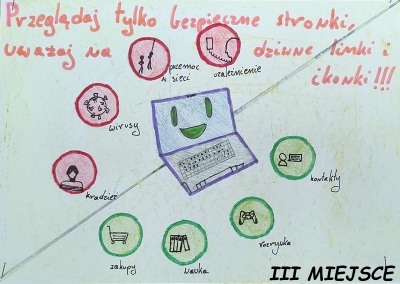 Przeglądaj tylko bezpieczne stronki,
uważaj na dziwne linki i
ikonki!!!
przemoc w sieci
uzależnienie
wirusy
kradzież
kontakty
rozrywka
nauka
zakupy
III MIEJSCE